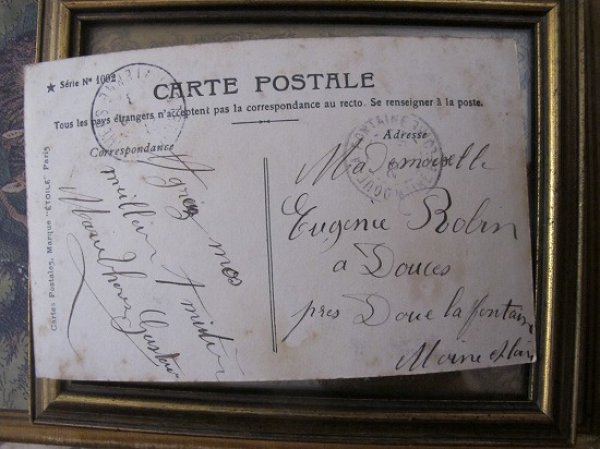 ★ Série Nº 1002
CARTE POSTALE
Tous les pays étrangers n'acceptent pas la correspondance au recto. Se renseigner à la poste.
Correspondance
Agréez mes
meilleur Amitié
Marie
Cartes Postales, Marque "ÉTOILE" Paris
Adresse
Mademoiselle
Eugenie Robin
a Douces
près Doue la fontaine
Maine et Loire